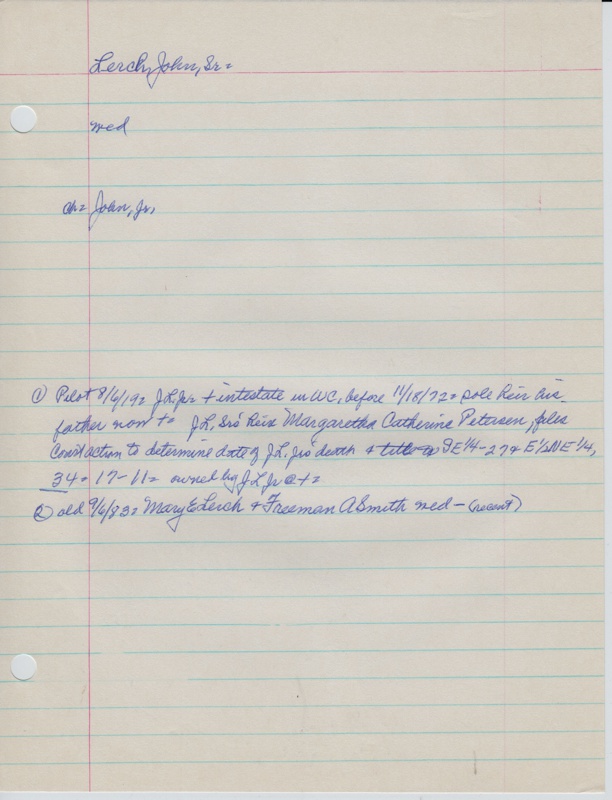 Lerch, John, Sr=
med
ch= John, Jr,
① Pilot 8/6/19= J.L. Jr= + intestate in WC, before 11/18/72= sole heir his
father now += J.L, Sr's heir Margaretha Catherine Petersen, files
court action to determine date of J.L. Jr's death + title to SE 1/4-27 + E 1/2 NE 1/4,
34= 17-11= owned by J L Jr @ +=
② old 9/6/83= Mary E Lerch + Freeman A Smith med - (recent)